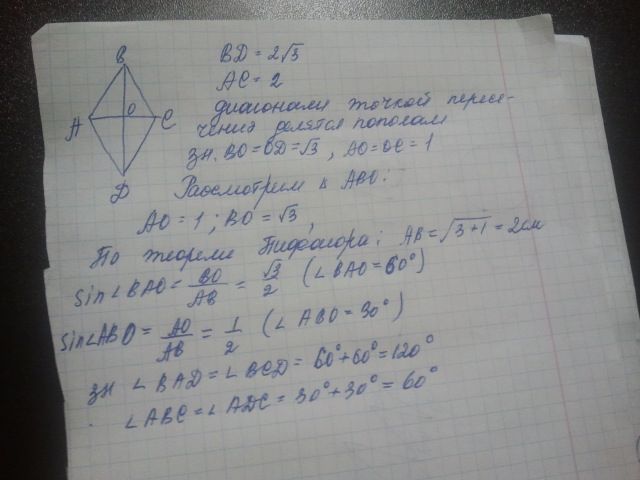 B
A
O
C
D
BD = 2√3
AC = 2
диагонали точкой пересе-
чения делятся пополам
зн. BO = OD = √3, AO = OC = 1
Рассмотрим ABO:
AO = 1; BO = √3,
По теореме Пифагора: AB = √3+1 = 2см
sin∠BAO = BO/AB = √3/2 (∠BAO = 60°)
sin∠ABO = AO/AB = 1/2 (∠ABO = 30°)
зн ∠BAD = ∠BCD = 60°+60° = 120°
∠ABC = ∠ADC = 30°+30° = 60°